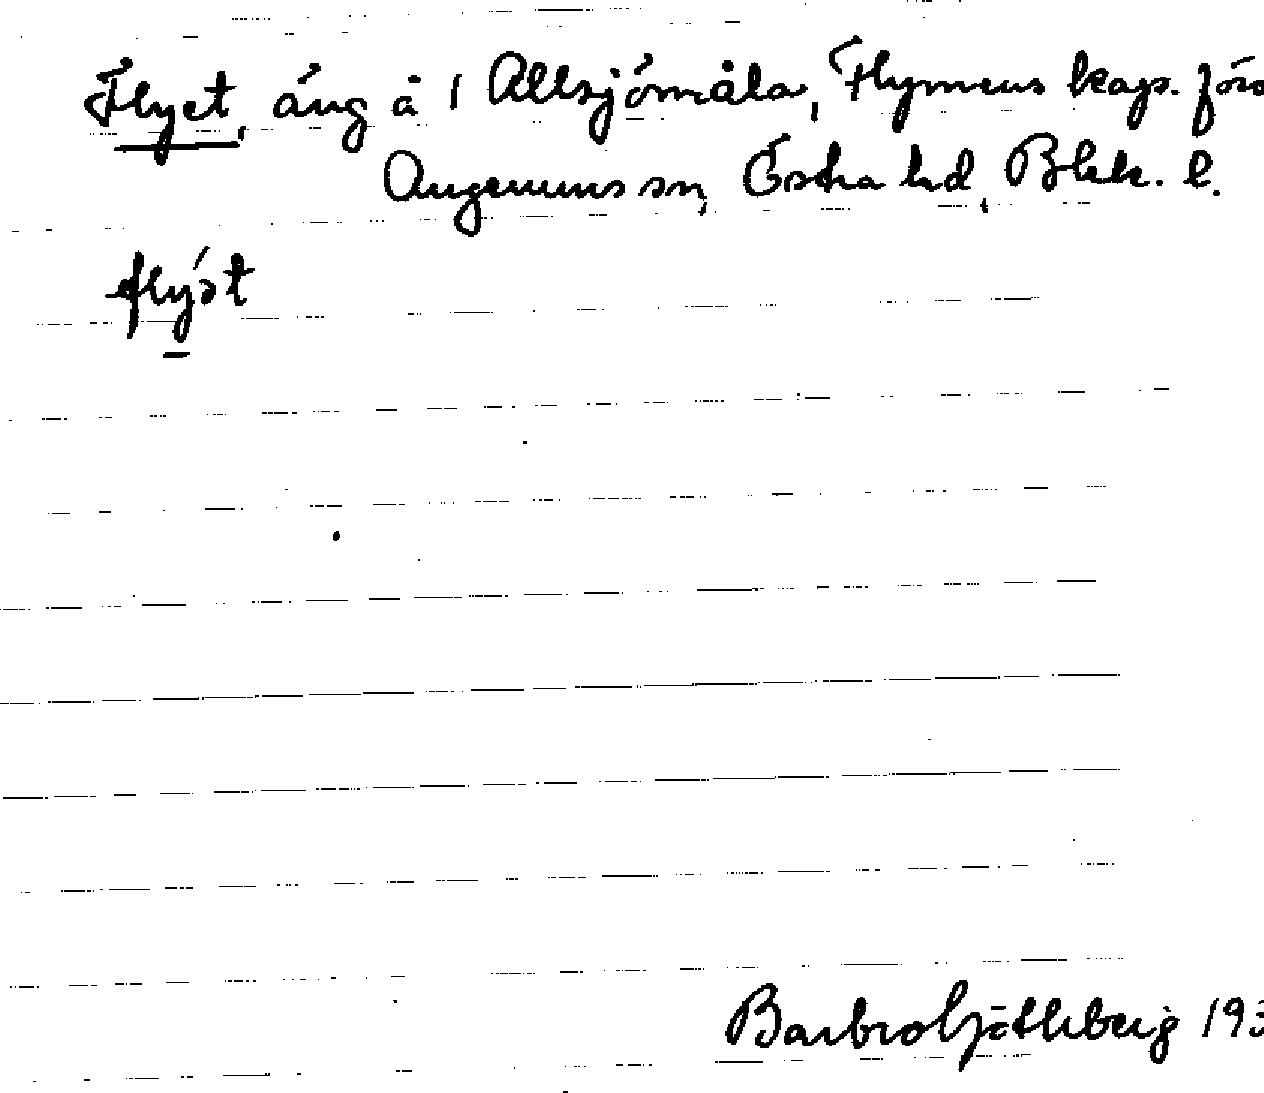 Flyet, äng å 1 Allsjömåla, Flymens kap. förs
Augerums sn, Östra hd, Blek. l.
flýət
Barbro Götlberg 193